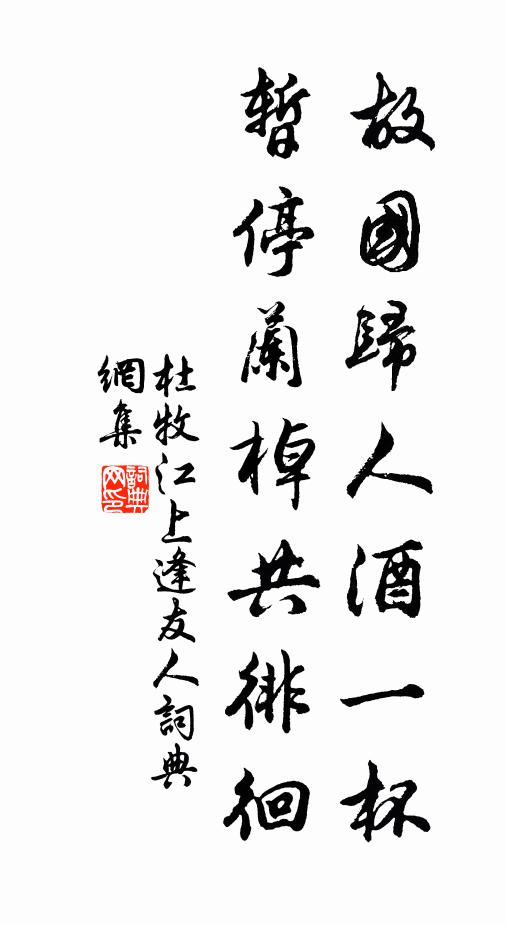 故國歸人酒一杯
暫停蘭棹共徘徊
杜牧江上逢友人詞典
網集
詞典
网印